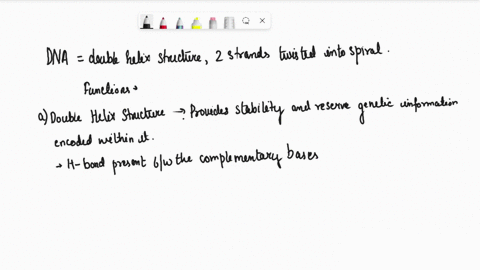 DNA = double helix structure, 2 strands twisted into spiral.
Functions →
a) Double Helix Structure → Provides stability and reserve genetic information
encoded within it.
→ H-bond present b/w the complementary bases